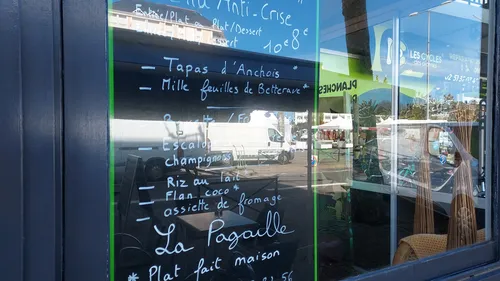 Anti-Crise
Entrée/Plat ou Plat/Dessert
10€ 8€
- Tapas d'Anchois *
- Mille feuilles de Betterave *
- Escalo
champignons
- Riz au lait
- Flan coco *
- assiette de fromage
La Pagaille
* Plat fait maison
56
PLANCHES
LES CYCLES